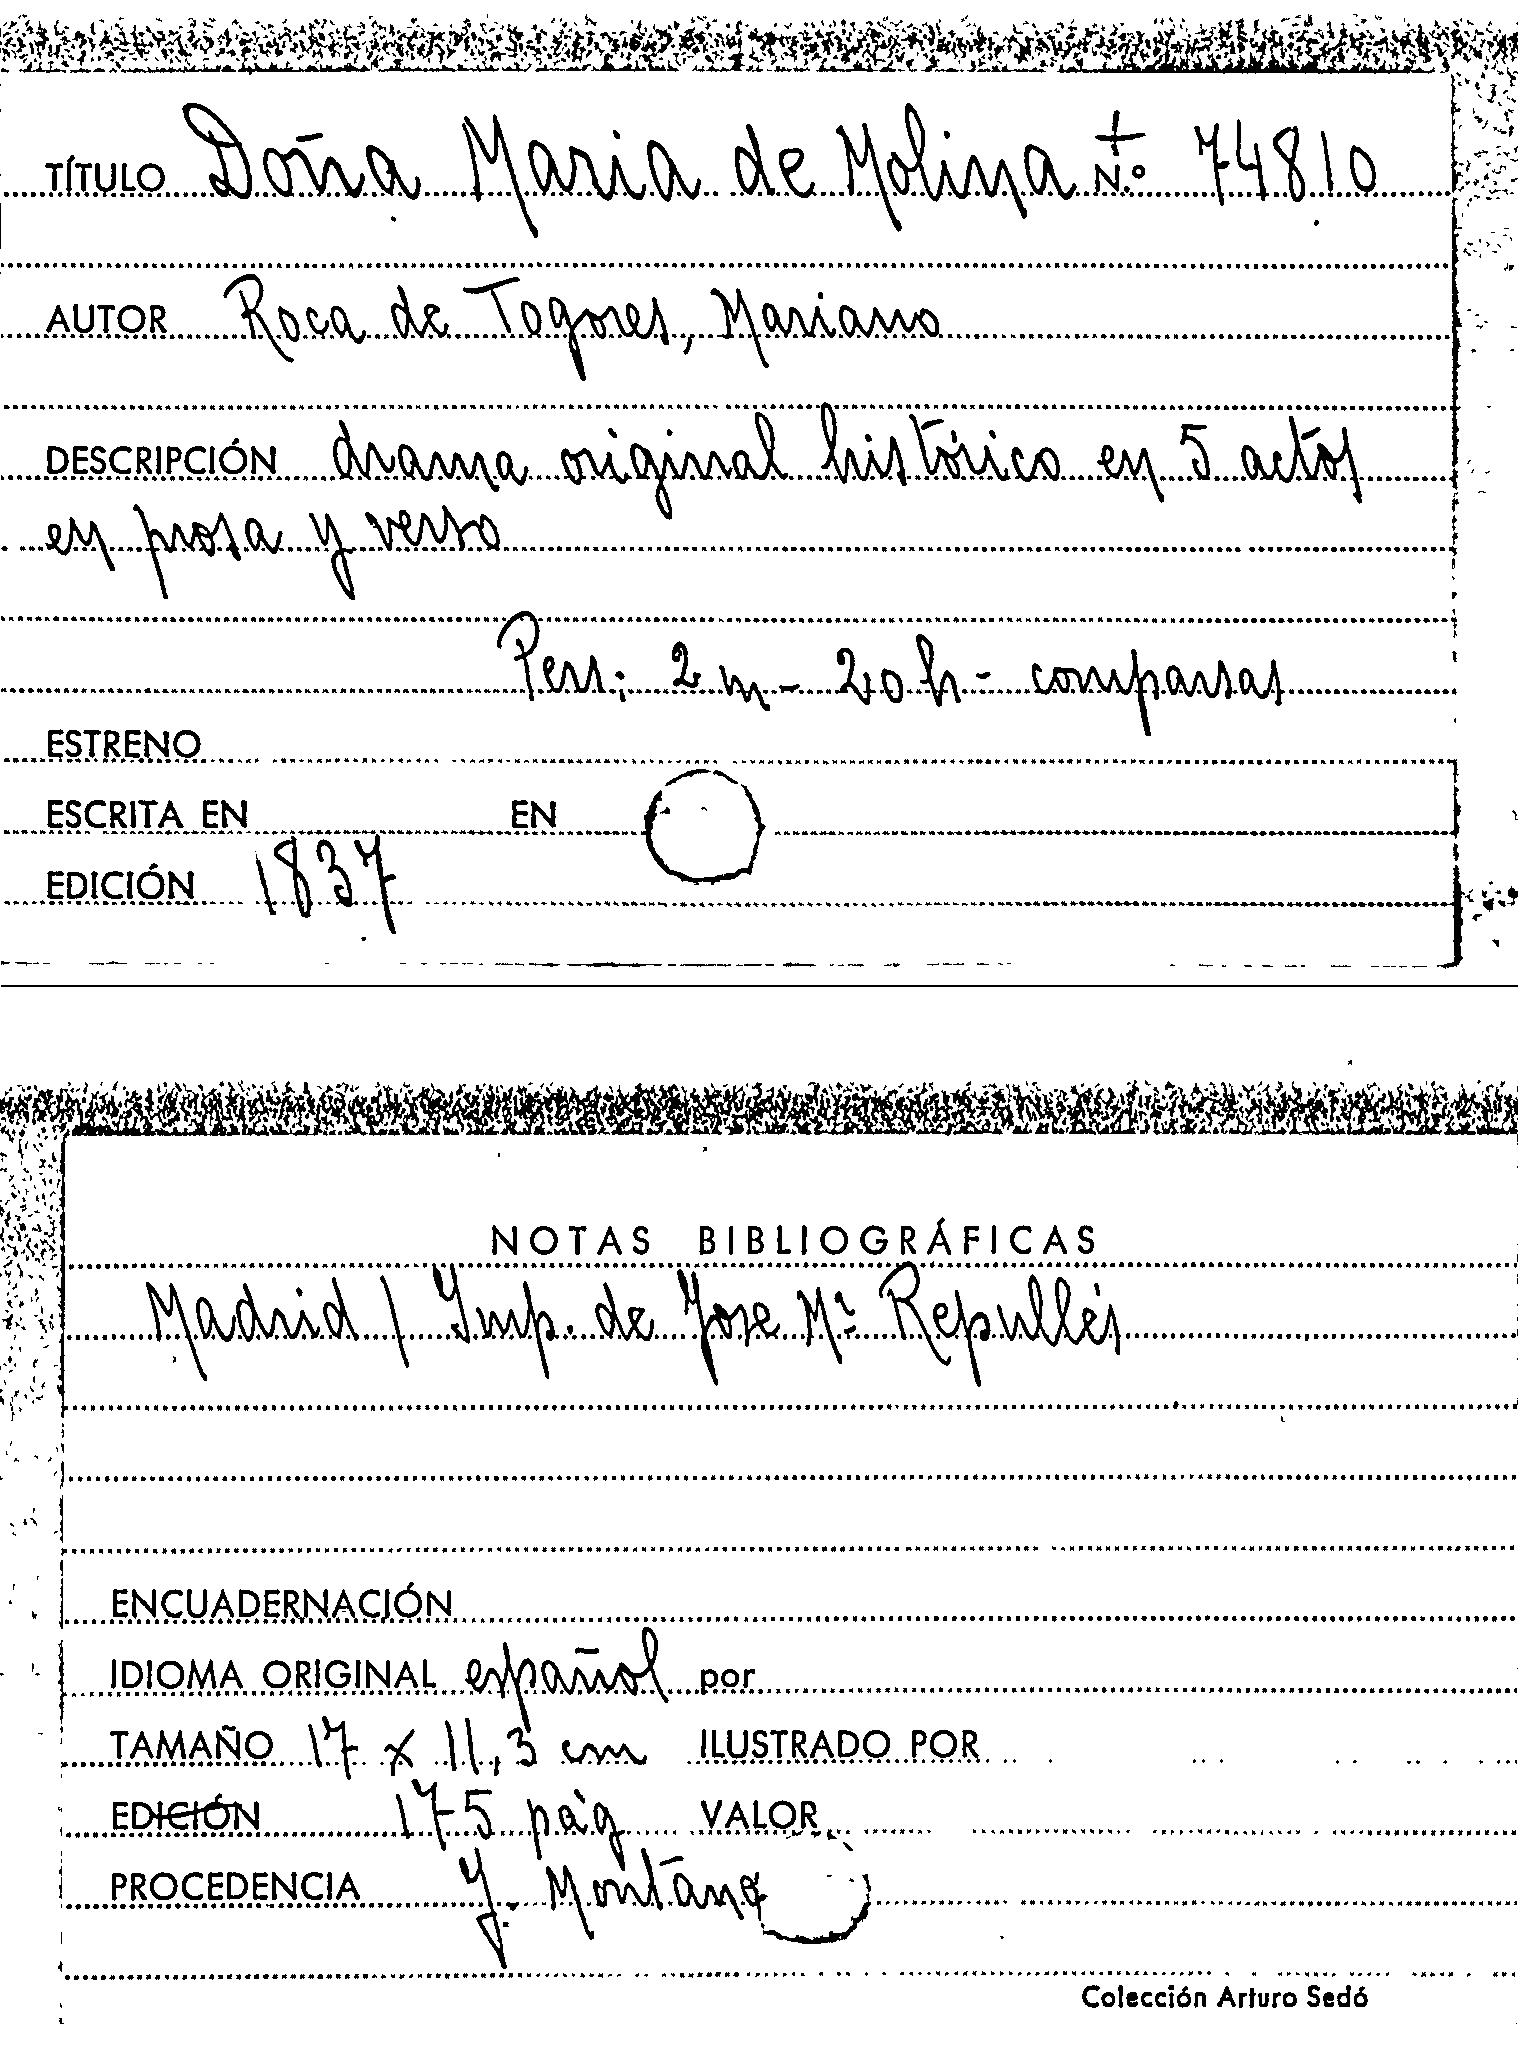 TÍTULO Doña Maria de Molina N.º 74810
AUTOR Roca de Togores, Mariano
DESCRIPCIÓN drama original histórico en 5 actos
en prosa y verso
Pers: 2 m - 20 h - comparsas
ESTRENO
ESCRITA EN EN
EDICIÓN 1837
NOTAS BIBLIOGRÁFICAS
Madrid / Imp. de Jose Mª Repullés
ENCUADERNACIÓN
IDIOMA ORIGINAL español por
TAMAÑO 17 x 11,3 cm ILUSTRADO POR
EDICIÓN 175 pág VALOR
PROCEDENCIA J. Montaña
Colección Arturo Sedó